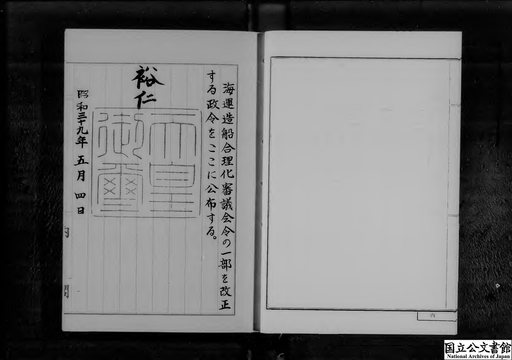 海運造船合理化審議会令の一部を改正
する政令をここに公布する。
裕仁
天皇御璽
昭和三十九年五月四日
国立公文書館
National Archives of Japan